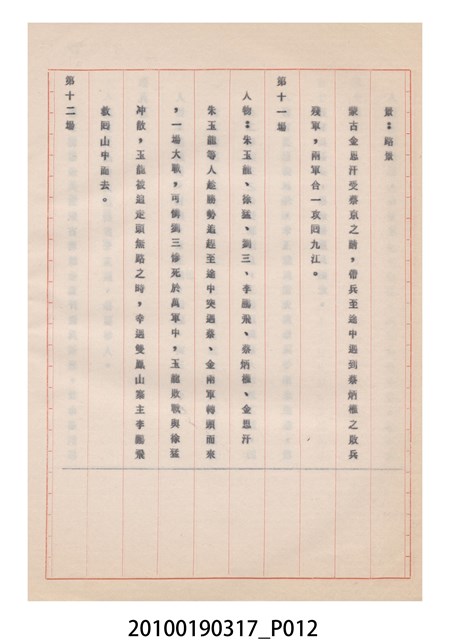 景：路景
蒙古金恩汗受蔡京之請，帶兵至途中遇到蔡炳權之敗兵
殘軍，兩軍合一攻回九江。
第十一場
人物：朱玉龍、徐猛、劉三、李鵬飛、蔡炳權、金恩汗
朱玉龍等人趁勝勢追趕至途中突遇蔡、金兩軍轉頭而來
，一場大戰，可憐劉三慘死於萬軍中，玉龍敗戰與徐猛
冲散，玉龍被追走頭無路之時，幸遇雙鳳山寨主李鵬飛
救回山中而去。
第十二場
20100190317_P012